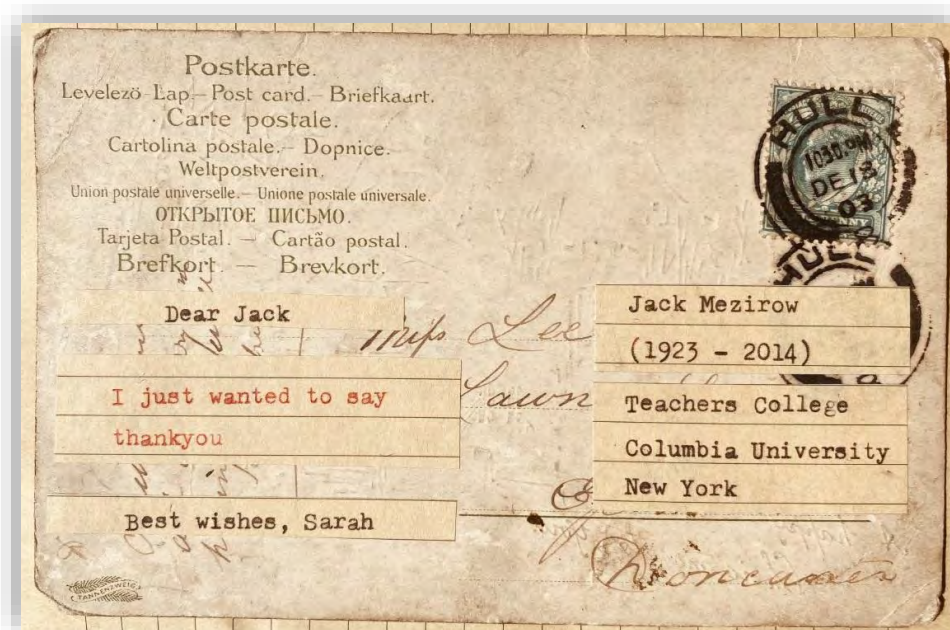 Postkarte.
Levelező-Lap.– Post card.– Briefkaart.
Carte postale.
Cartolina postale.– Dopnice.
Weltpostverein.
Union postale universelle.– Unione postale universale.
ОТКРЫТОЕ ПИСЬМО.
Tarjeta Postal. – Cartão postal.
Brefkort. — Brevkort.
HULL
1030 PM
DE 18
03
HULL
Dear Jack
I just wanted to say
thankyou
Best wishes, Sarah
Jack Mezirow
(1923 - 2014)
Teachers College
Columbia University
New York
Miss Lee
Lawn
Doncaster
TANNENZWEIG